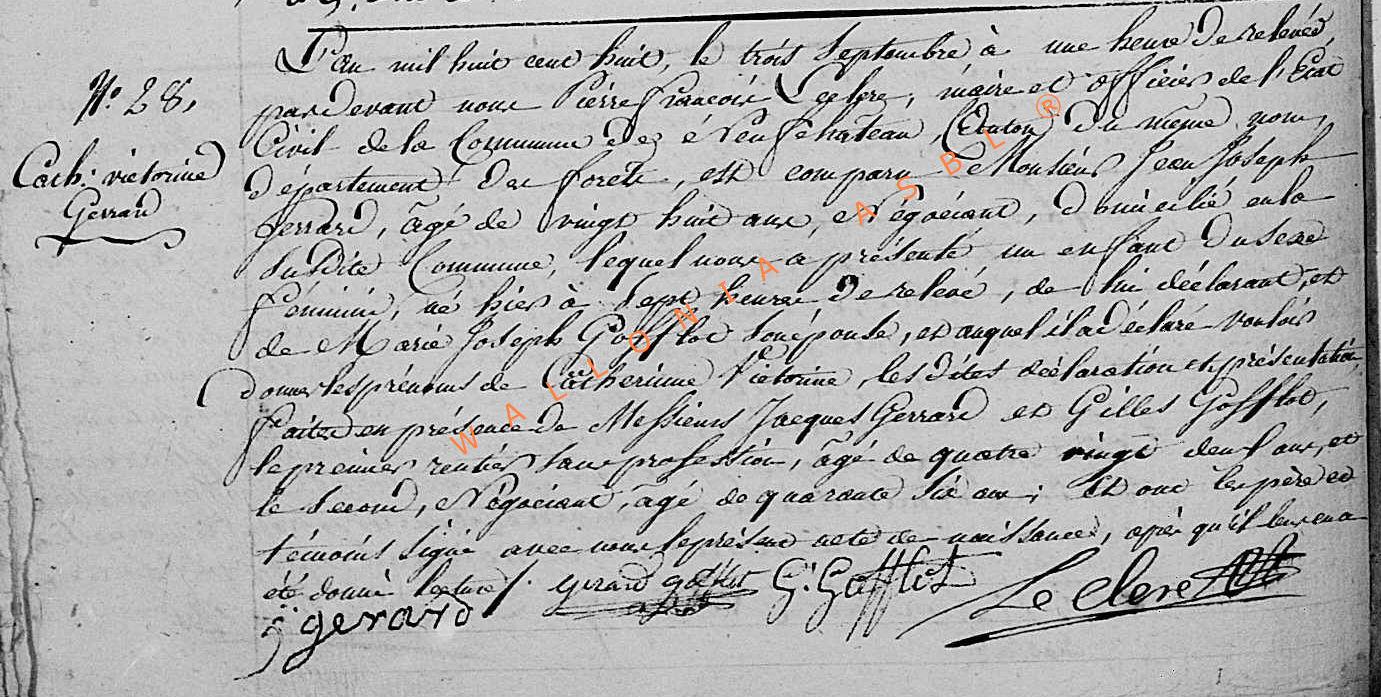 N.º 28,
Cath: victorine
Gerrard
L'an mil huit cent huit, le trois Septembre, à une heure de relevée,
pardevant nous Pierre françois Leclere, maire et officier de l'Etat
Civil de la Commune de Neufchateau, Canton du même nom,
département des forets, est comparu Monsieur Jean Joseph
Gerrard, âgé de vingt huit ans, Négociant, domicilié en la
susdite Commune, lequel nous a présenté un enfant du sexe
féminin, né hier à Sept heures de relevé, de lui déclarant, et
de Marie Joseph Gofflot son épouse, et auquel il a déclaré vouloir
donner les prénoms de Catherinne Victorine, les dites déclaration et présentation
faites en présence de Messieurs Jacques Gerrard et Gilles Gofflot,
le premier rentier sans profession, âgé de quatre vingt deux ans, et
le second, Négociant, âgé de quarante six ans; et ont les père et
témoins signé avec nous le présent acte de naissance, après qu'il leur en a
été donné lecture /. gerard gofflot G: Gofflot Le clere
j gerard
WALLONIA ASBL ®